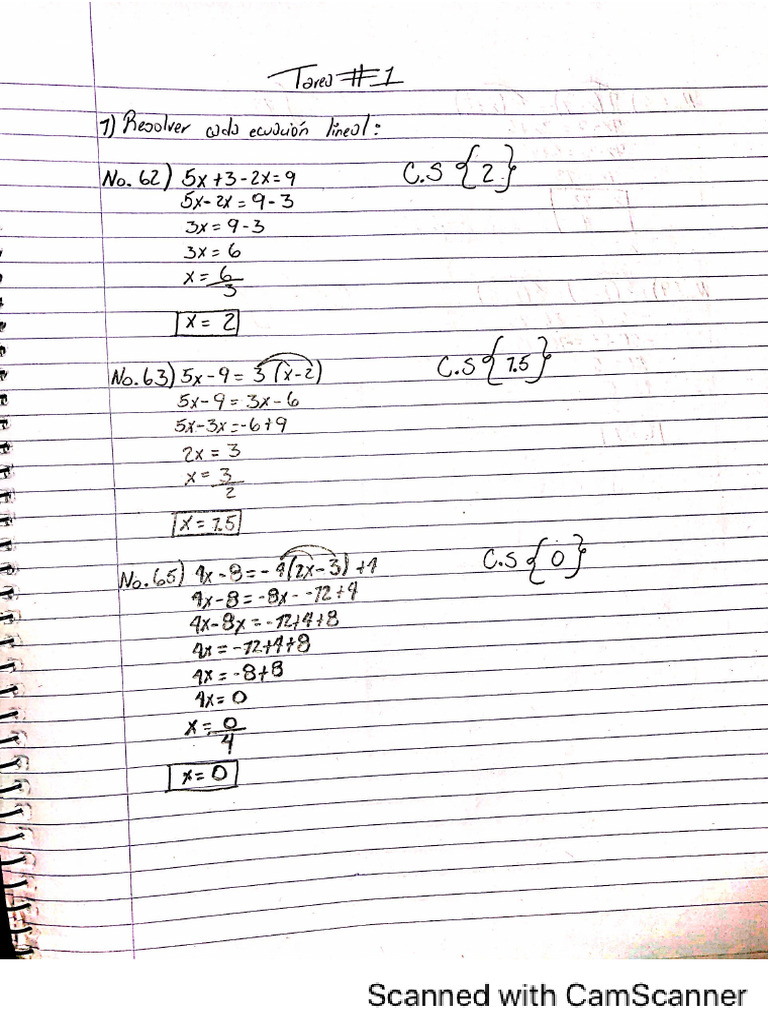 Tarea #1
1) Resolver cada ecuación lineal:
No. 62) 5x+3-2x=9 C.S {2}
5x-2x=9-3
3x=9-3
3x=6
x=6/3
x=2
No. 63) 5x-9=3(x-2) C.S {1.5}
5x-9=3x-6
5x-3x=-6+9
2x=3
x=3/2
x=1.5
No. 65) 4x-8=-4(2x-3)+4 C.S {0}
4x-8=-8x--12+4
4x-8x=-12+4+8
4x=-12+4+8
4x=-8+8
4x=0
x=0/4
x=0
Scanned with CamScanner